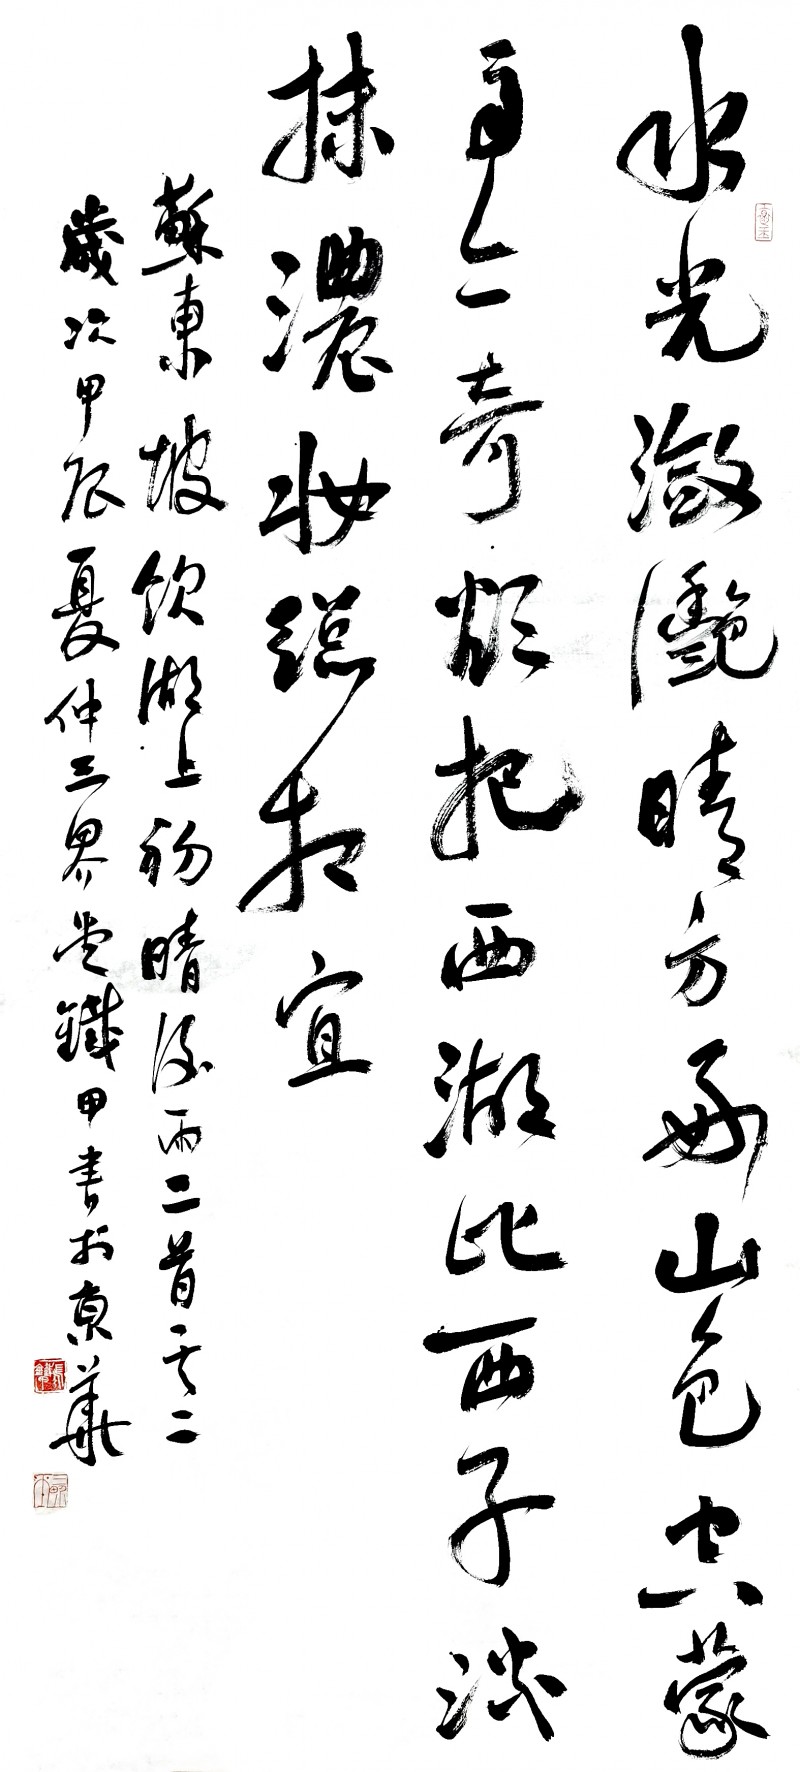 水光潋灧晴方好山色空蒙
雨亦奇欲把西湖比西子淡
抹濃妆總相宜
蘇東坡飲湖上初晴後雨二首其二
歲次甲辰夏仲三界堂鐵甲書於京華